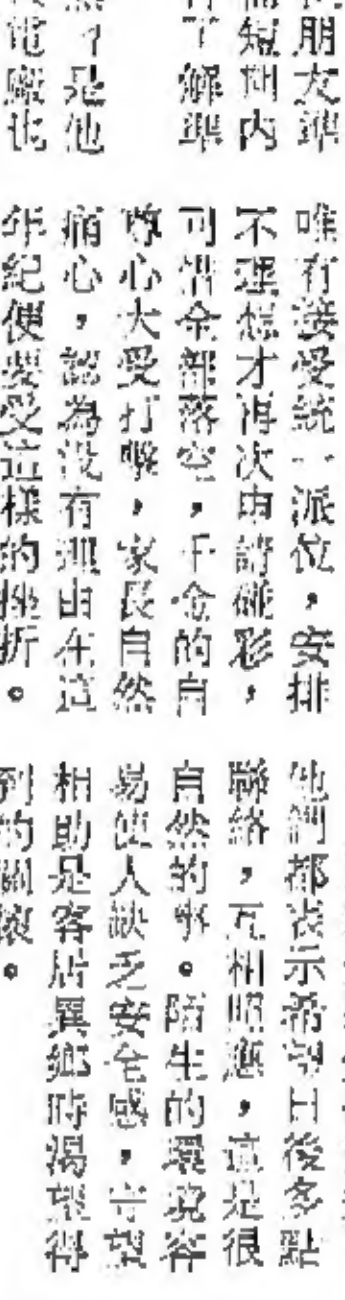 朋友準
短期內
了解準
？是他
電廠也
唯有接受統一派位，安排
不理想才再次申請碰彩，
可惜全部落空，千金的自
尊心大受打擊，家長自然
痛心，認為沒有理由在這
年紀便要受這樣的挫折。
他們都表示希望日後多點
聯絡，互相照應，這是很
自然的事。陌生的環境容
易使人缺乏安全感，守望
相助是客居異鄉時渴望得
到的關懷。